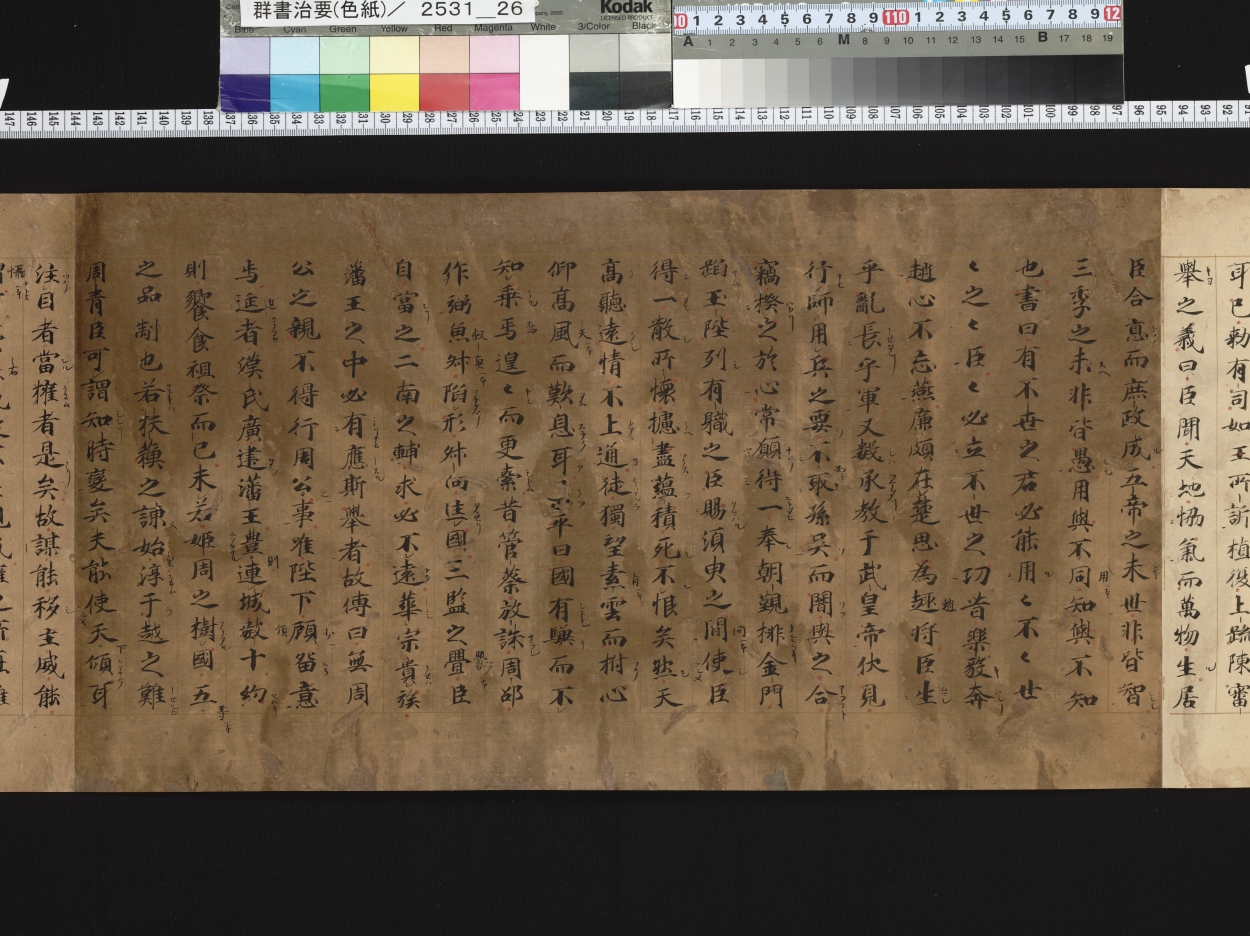 群書治要(色紙)／ 2531＿26
Kodak
LICENSED PRODUCT
Blue Cyan Green Yellow Red Magenta White 3/Color Black
耳已勅有司如王所訴植復上疏陳審
舉之義曰臣聞天地恊氣而萬物生居
臣合意而庶政成五帝之末世非皆智
三季之末非皆愚用與不同知與不知
也書曰有不世之君必能用〻不〻世
〻之〻臣〻必立不世之功昔樂毅奔
趙心不忘燕廉頗在楚思為趣将臣生
乎亂長乎軍又数承教于武皇帝伏見
行師用兵之要不取孫吳而闇與之合
竊揆之於心常願得一奉朝覲排金門
蹈玉陛列有職之臣賜須臾之間使臣
得一散所懷攄盡蘊積死不恨矣然天
高聽遠情不上通徒獨望素雲而拊心
仰高風而歎息耳平曰國有驥而不
知乗焉遑〻而更索昔管蔡放誅周邵
作弼魚舛陷形舛向匡國三監之舋臣
自當之二南之輔求必不遠華宗貴族
藩王之中必有應斯舉者故傳曰無周
公之親不得行周公事唯陛下願留意
焉近者漢氏廣建藩王豊連城数十約
則饗食祖祭而已未若姬周之樹國五
之品制也若扶蘇之諫始淳于越之難
周青臣可謂知時變矣夫能使天傾耳
注目者當權者是矣故謀能移主威能